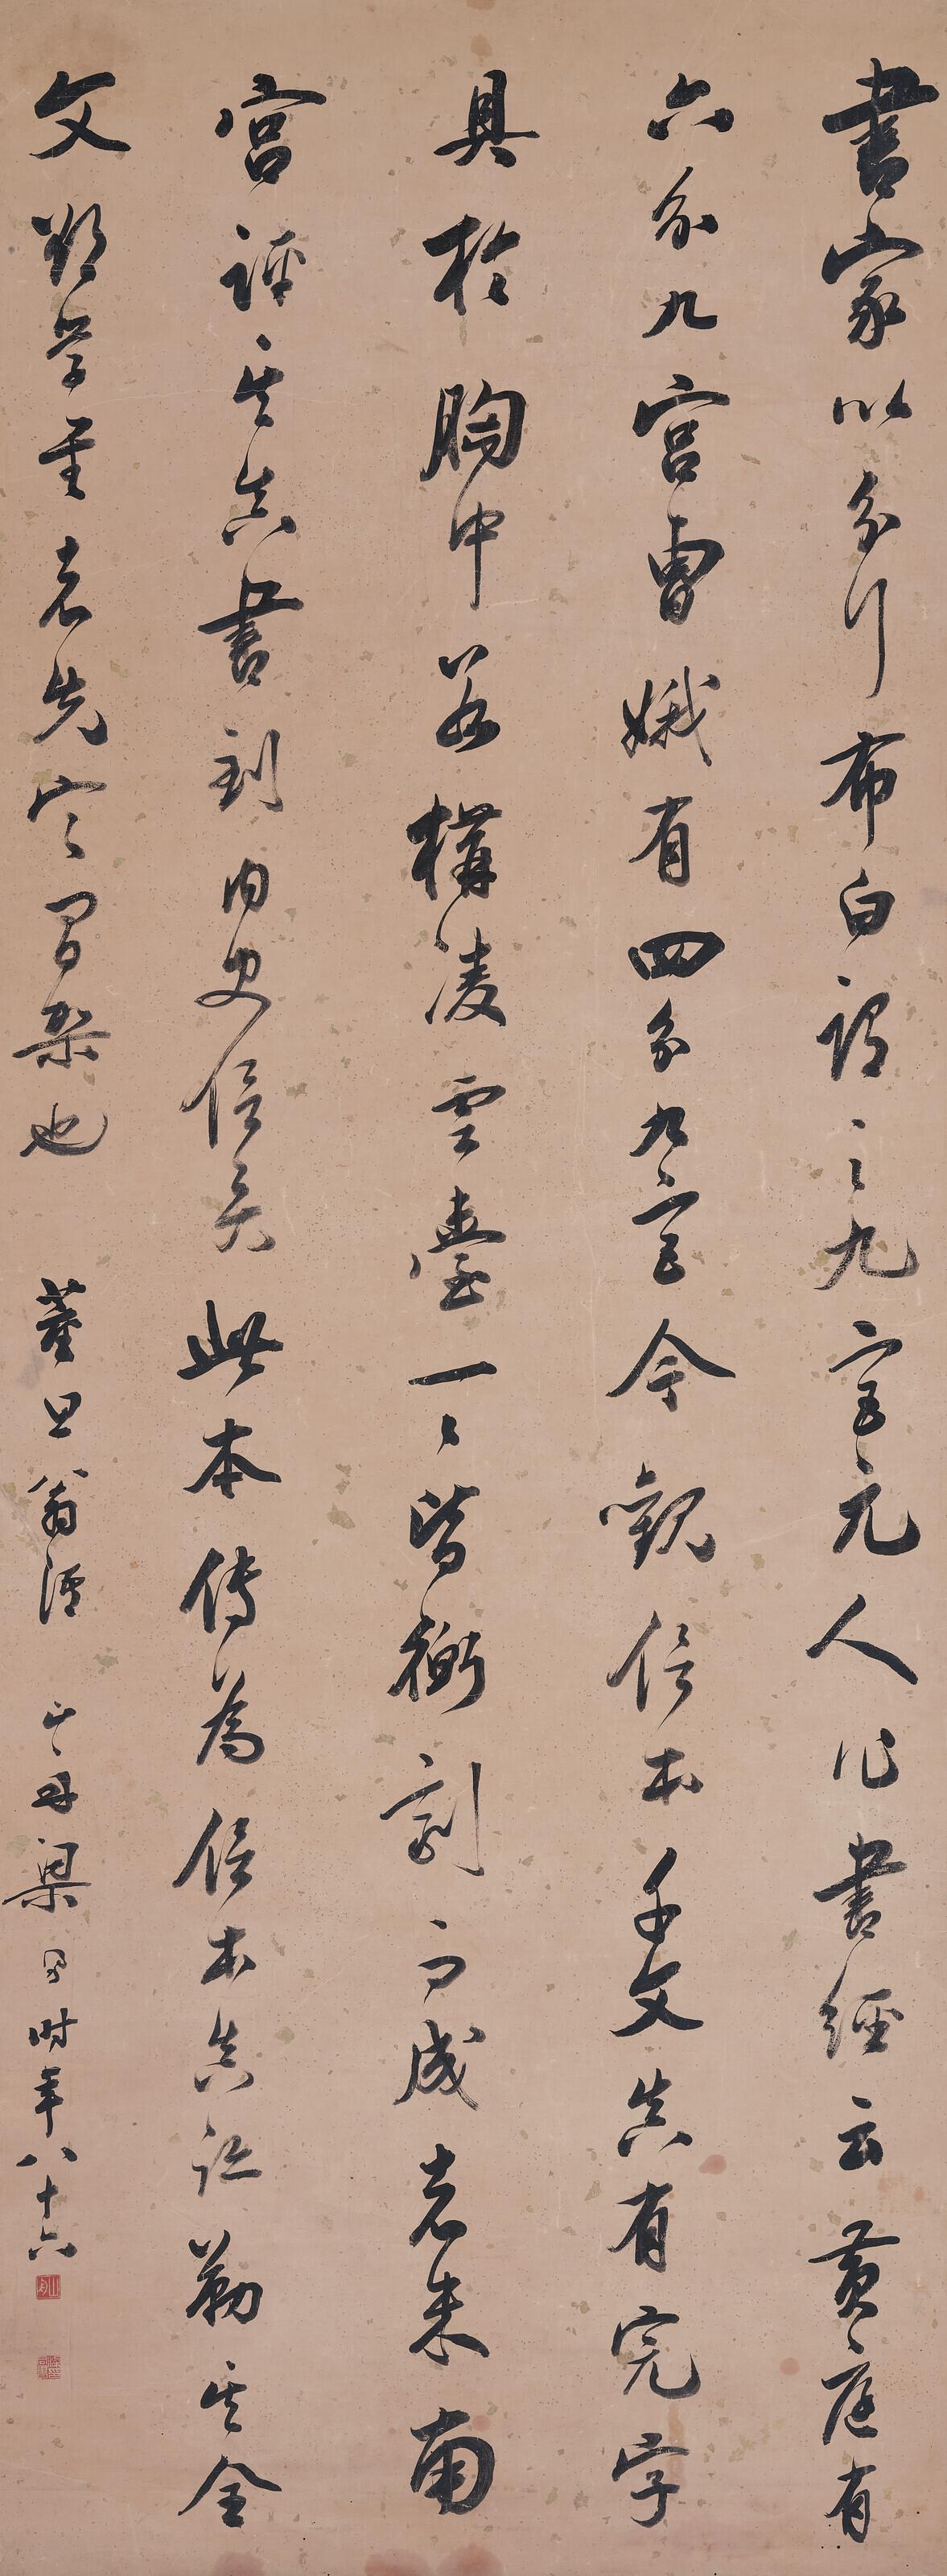 書家以分行布白謂之九宮元人作書經云黃庭有
六分九宮曹娥有四分九宮今觀信本千文真有完字
具於胸中若構凌雲臺一一皆衡劑而成者米南
宮評其真書到內史信矣此本傳為信本真跡勒其全
文欲學書者先定間架也 董思翁 山舟梁同書時年八十六